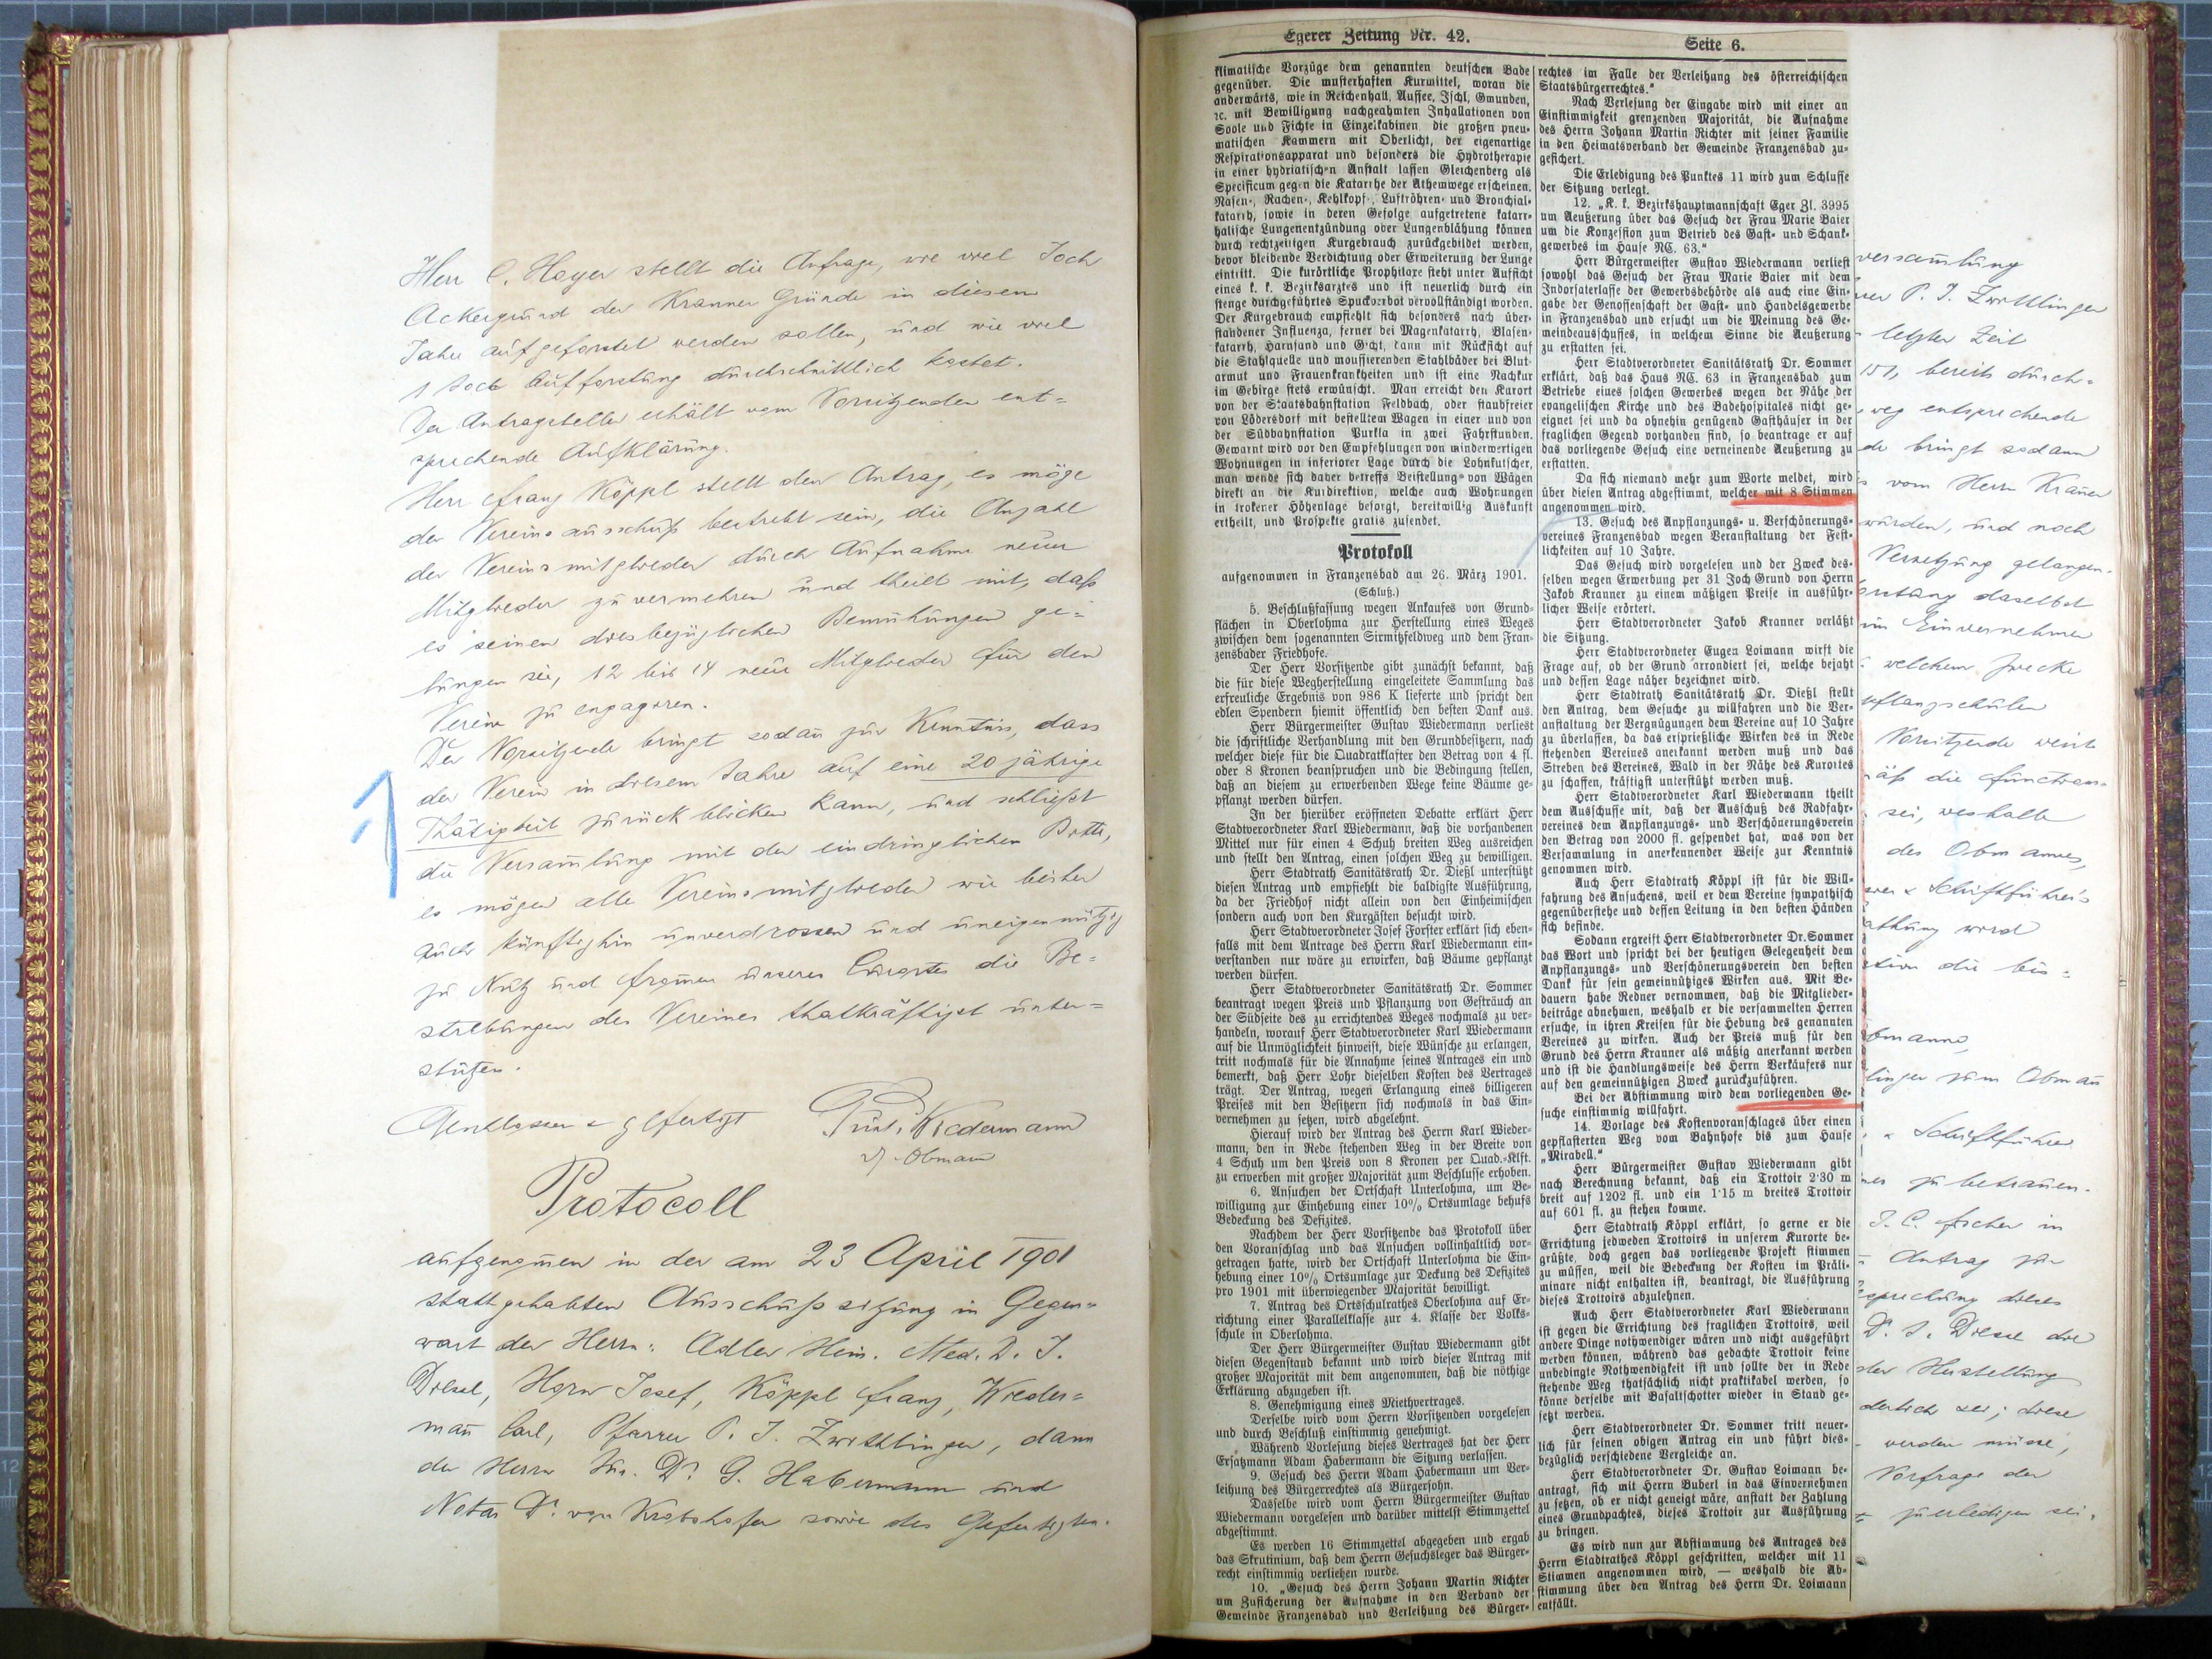 Herr C. Hoyer stellt die Anfrage, wie viel Joch
Ackergrund der Kranner Gründe in diesem
Jahre aufgeforstet werden sollen, und wie viel
1 Joch Aufforstung durchschnittlich kostet.
Der Antragsteller erhält vom Vorsitzenden ent=
sprechende Aufklärung.
Herr Franz Köppl stellt den Antrag, es möge
der Vereinsausschuß bestrebt sein, die Anzahl
der Vereinsmitglieder durch Aufnahme neuer
Mitglieder zu vermehren und theilt mit, daß
es seinen diesbezüglichen Bemühungen ge=
lungen sei, 12 bis 14 neue Mitglieder für den
Verein zu engagiren.
Der Vorsitzende bringt sodañ zur Kenntnis, dass
der Verein in diesem Jahre auf eine 20 jährige
Thätigkeit zurück blicken kann, und schließt
die Versam̄lung mit der eindringlichen Bitte,
es mögen alle Vereinsmitglieder wie bisher
auch künftighin unverdrossen und uneigennützig
zu Nutz und From̄en unseres Curortes die Be=
strebungen des Vereines thatkräftigst unter=
stützen.
Geschlossen & gefertigt Gust. Wiedermann
d. Obmann
Protocoll
aufgenom̄en in der am 23 April 1901
stattgehabten Ausschuß sitzung in Gegen=
wart der Herrn: Adler Hein. Med. D. J.
Diessl, Horn Josef, Köppl Franz, Wieder=
mañ Carl, Pfarrer P. J. Zwittlinger, dann
der Herrn Dr. G. Habermann und
Notar Dr. von sowie des Gefertigten.
Egerer Zeitung Nr. 42. Seite 6.
klimatische Vorzüge dem genannten deutschen Bade
gegenüber. Die musterhaften Kurmittel, woran die
anderwärts, wie in Reichenhall, Aussee, Ischl, Gmunden,
ꝛc. mit Bewilligung nachgeahmten Inhallationen von
Soole und Fichte in Einzelkabinen die großen pneu-
matischen Kammern mit Oberlicht, der eigenartige
Respirationsapparat und besonders die Hydrotherapie
in einer hydriatischen Anstalt lassen Gleichenberg als
Specificum gegen die Katarrhe der Athemwege erscheinen.
Nasen-, Rachen-, Kehlkopf-, Luftröhren- und Bronchial-
katarrh, sowie in deren Gefolge aufgetretene katarr-
halische Lungenentzündung oder Lungenblähung können
durch rechtzeitigen Kurgebrauch zurückgebildet werden,
bevor bleibende Verdichtung oder Erweiterung der Lunge
eintritt. Die kurörtliche Prophilaxe steht unter Aufsicht
eines k. k. Bezirksarztes und ist neuerlich durch ein
strenge durchgeführtes Spuckverbot vervollständigt worden.
Der Kurgebrauch empfiehlt sich besonders nach über-
standener Influenza, ferner bei Magenkatarrh, Blasen-
katarrh, Harnsand und Gicht, dann mit Rücksicht auf
die Stahlquelle und moussierenden Stahlbäder bei Blut-
armut und Frauenkrankheiten und ist eine Nachkur
im Gebirge stets erwünscht. Man erreicht den Karort
von der Staatsbahnstation Feldbach, oder staubfreier
von Lödersdorf mit bestelltem Wagen in einer und von
der Südbahnstation Purkla in zwei Fahrstunden.
Gewarnt wird vor den Empfehlungen von minderwertigen
Wohnungen in inferiorer Lage durch die Lohnkutscher,
man wende sich daher betreffs Beistellung von Wägen
direkt an die Kurdirektion, welche auch Wohnungen
in trokener Höhenlage besorgt, bereitwillig Auskunft
ertheilt, und Prospekte gratis zusendet.
Protokoll
aufgenommen in Franzensbad am 26. März 1901.
(Schluß.)
5. Beschlußfassung wegen Ankaufes von Grund-
flächen in Oberlohma zur Herstellung eines Weges
zwischen dem sogenannten Sirmitzfeldweg und dem Fran-
zensbader Friedhofe.
Der Herr Vorsitzende gibt zunächst bekannt, daß
die für diese Wegherstellung eingeleitete Sammlung das
erfreuliche Ergebnis von 986 K lieferte und spricht den
edlen Spendern hiemit öffentlich den besten Dank aus.
Herr Bürgermeister Gustav Wiedermann verliest
die schriftliche Verhandlung mit den Grundbesitzern, nach
welcher diese für die Quadratklafter den Betrag von 4 fl.
oder 8 Kronen beanspruchen und die Bedingung stellen,
daß an diesem zu erwerbenden Wege keine Bäume ge-
pflanzt werden dürfen.
In der hierüber eröffneten Debatte erklärt Herr
Stadtverordneter Karl Wiedermann, daß die vorhandenen
Mittel nur für einen 4 Schuh breiten Weg ausreichen
und stellt den Antrag, einen solchen Weg zu bewilligen.
Herr Stadtrath Sanitätsrath Dr. Dießl unterstützt
diesen Antrag und empfiehlt die baldigste Ausführung,
da der Friedhof nicht allein von den Einheimischen
sondern auch von den Kurgästen besucht wird.
Herr Stadtverordneter Josef Forster erklärt sich eben-
falls mit dem Antrage des Herrn Karl Wiedermann ein-
verstanden nur wäre zu erwirken, daß Bäume gepflanzt
werden dürfen.
Herr Stadtverordneter Sanitätsrath Dr. Sommer
beantragt wegen Preis und Pflanzung von Gesträuch an
der Südseite des zu errichtendes Weges nochmals zu ver-
handeln, worauf Herr Stadtverordneter Karl Wiedermann
auf die Unmöglichkeit hinweist, diese Wünsche zu erlangen,
tritt nochmals für die Annahme seines Antrages ein und
bemerkt, daß Herr Lohr dieselben Kosten des Vertrages
trägt. Der Antrag, wegen Erlangung eines billigeren
Preises mit den Besitzern sich nochmals in das Ein-
vernehmen zu setzen, wird abgelehnt.
Hierauf wird der Antrag des Herrn Karl Wieder-
mann, den in Rede stehenden Weg in der Breite von
4 Schuh um den Preis von 8 Kronen per Quad.-Klft.
zu erwerben mit großer Majorität zum Beschlusse erhoben.
6. Ansuchen der Ortschaft Unterlohma, um Be-
willigung zur Einhebung einer 10% Ortsumlage behufs
Bedeckung des Defizites.
Nachdem der Herr Vorsitzende das Protokoll über
den Voranschlag und das Ansuchen vollinhaltlich vor-
getragen hatte, wird der Ortschaft Unterlohma die Ein-
hebung einer 10% Ortsumlage zur Deckung des Defizites
pro 1901 mit überwiegender Majorität bewilligt.
7. Antrag des Ortschulrathes Oberlohma auf Er-
richtung einer Parallelklasse zur 4. Klasse der Volks-
schule in Oberlohma.
Der Herr Bürgermeister Gustav Wiedermann gibt
diesen Gegenstand bekannt und wird dieser Antrag mit
großer Majorität mit dem angenommen, daß die nöthige
Erklärung abzugeben ist.
8. Genehmigung eines Miethvertrages.
Derselbe wird vom Herrn Vorsitzenden vorgelesen
und durch Beschluß einstimmig genehmigt.
Während Vorlesung dieses Vertrages hat der Herr
Ersatzmann Adam Habermann die Sitzung verlassen.
9. Gesuch des Herrn Adam Habermann um Ver-
leihung des Bürgerrechtes als Bürgersohn.
Dasselbe wird vom Herrn Bürgermeister Gustav
Wiedermann vorgelesen und darüber mittelst Stimmzettel
abgestimmt.
Es werden 16 Stimmzettel abgegeben und ergab
das Skrutinium, daß dem Herrn Gesuchsleger das Bürger-
recht einstimmig verliehen wurde.
10. „Gesuch des Herrn Johann Martin Richter
um Zusicherung der Aufnahme in den Verband der
Gemeinde Franzensbad und Verleihung des Bürger-
rechtes im Falle der Verleihung des österreichischen
Staatsbürgerrechtes."
Nach Verlesung der Eingabe wird mit einer an
Einstimmigkeit grenzenden Majorität, die Aufnahme
des Herrn Johann Martin Richter mit seiner Familie
in den Heimatsverband der Gemeinde Franzensbad zu-
gesichert.
Die Erledigung des Punktes 11 wird zum Schlusse
der Sitzung verlegt.
12. „K. k. Bezirkshauptmannschaft Eger Zl. 3995
um Aeußerung über das Gesuch der Frau Marie Baier
um die Konzession zum Betrieb des Gast- und Schank-
gewerbes im Hause NC. 63."
Herr Bürgermeister Gustav Wiedermann verliest
sowohl das Gesuch der Frau Marie Baier mit dem
Indorsaterlasse der Gewerbsbehörde als auch eine Ein-
gabe der Genossenschaft der Gast- und Handelsgewerbe
in Franzensbad und ersucht um die Meinung des Ge-
meindeausschusses, in welchem Sinne die Aeußerung
zu erstatten sei.
Herr Stadtverordneter Sanitätsrath Dr. Sommer
erklärt, daß das Haus NC. 63 in Franzensbad zum
Betriebe eines solchen Gewerbes wegen der Nähe der
evangelischen Kirche und des Badehospitales nicht ge-
eignet sei und da ohnehin genügend Gasthäuser in der
fraglichen Gegend vorhanden sind, so beantrage er auf
das vorliegende Gesuch eine verneinende Aeußerung zu
erstatten.
Da sich niemand mehr zum Worte meldet, wird
über diesen Antrag abgestimmt, welcher mit 8 Stimmen
angenommen wird.
13. Gesuch des Anpflanzungs- u. Verschönerungs-
vereines Franzensbad wegen Veranstaltung der Fest-
lichkeiten auf 10 Jahre.
Das Gesuch wird vorgelesen und der Zweck des-
selben wegen Erwerbung per 31 Joch Grund von Herrn
Jakob Kranner zu einem mäßigen Preise in ausführ-
licher Weise erörtert.
Herr Stadtverordneter Jakob Kranner verläßt
die Sitzung.
Herr Stadtverordneter Eugen Loimann wirft die
Frage auf, ob der Grund arrondiert sei, welche bejaht
und dessen Lage näher bezeichnet wird.
Herr Stadtrath Sanitätsrath Dr. Dießl stellt
den Antrag, dem Gesuche zu willfahren und die Ver-
anstaltung der Vergnügungen dem Vereine auf 10 Jahre
zu überlassen, da das ersprießliche Wirken des in Rede
stehenden Vereines anerkannt werden muß und das
Streben des Vereines, Wald in der Nähe des Kurortes
zu schaffen, kräftigst unterstützt werden muß.
Herr Stadtverordneter Karl Wiedermann theilt
dem Ausschusse mit, daß der Ausschuß des Radfahr-
vereines dem Anpflanzungs- und Verschönerungsverein
den Betrag von 2000 fl. gespendet hat, was von der
Versammlung in anerkennender Weise zur Kenntnis
genommen wird.
Auch Herr Stadtrath Köppl ist für die Will-
fahrung des Ansuchens, weil er dem Vereine sympathisch
gegenüberstehe und dessen Leitung in den besten Händen
sich befinde.
Sodann ergreift Herr Stadtverordneter Dr. Sommer
das Wort und spricht bei der heutigen Gelegenheit dem
Anpflanzungs- und Verschönerungsverein den besten
Dank für sein gemeinnütziges Wirken aus. Mit Be-
dauern habe Redner vernommen, daß die Mitglieder-
beiträge abnehmen, weshalb er die versammelten Herren
ersuche, in ihren Kreisen für die Hebung des genannten
Vereines zu wirken. Auch der Preis muß für den
Grund des Herrn Kranner als mäßig anerkannt werden
und ist die Handlungsweise des Herrn Verkäufers nur
auf den gemeinnützigen Zweck zurückzuführen.
Bei der Abstimmung wird dem vorliegenden Ge-
suche einstimmig willfahrt.
14. Vorlage des Kostenvoranschlages über einen
gepflasterten Weg vom Bahnhofe bis zum Hause
„Mirabell."
Herr Bürgermeister Gustav Wiedermann gibt
nach Berechnung bekannt, daß ein Trottoir 2·30 m
breit auf 1202 fl. und ein 1·15 m breites Trottoir
auf 601 fl. zu stehen komme.
Herr Stadtrath Köppl erklärt, so gerne er die
Errichtung jedweden Trottoirs in unserem Kurorte be-
grüßte, doch gegen das vorliegende Projekt stimmen
zu müssen, weil die Bedeckung der Kosten im Präli-
minare nicht enthalten ist, beantragt, die Ausführung
dieses Trottoirs abzulehnen.
Auch Herr Stadtverordneter Karl Wiedermann
ist gegen die Errichtung des fraglichen Trottoirs, weil
andere Dinge nothwendiger wären und nicht ausgeführt
werden können, während das gedachte Trottoir keine
unbedingte Nothwendigkeit ist und sollte der in Rede
stehende Weg thatsächlich nicht praktikabel werden, so
könne derselbe mit Basaltschotter wieder in Stand ge-
setzt werden.
Herr Stadtverordneter Dr. Sommer tritt neuer-
lich für seinen obigen Antrag ein und führt dies-
bezüglich verschiedene Vergleiche an.
Herr Stadtverordneter Dr. Gustav Loimann be-
antragt, sich mit Herrn Buberl in das Einvernehmen
zu setzen, ob er nicht geneigt wäre, anstatt der Zahlung
eines Grundpachtes, dieses Trottoir zur Ausführung
zu bringen.
Es wird nun zur Abstimmung des Antrages des
Herrn Stadtrathes Köppl geschritten, welcher mit 11
Stimmen angenommen wird, — weshalb die Ab-
stimmung über den Antrag des Herrn Dr. Loimann
entfällt.
versam̄lung
P. J. Zwittlinger
letzter Zeit
bereits durch=
weg entsprechende
bringt sodann
vom Herrn Kraner
würden, und noch
Versetzung gelangen.
daselbst
im Einvernehmen
welchem Zwecke
Vorsitzende weist
die
sei, weshalb
des Obmannes,
& Schriftführers
wird
die bis=
zum Obmañ
& Schriftführer
zu betrauen.
J. C. Fischer in
Antrag zur
dieses
Dr. J. Diessl die
der Herstellung
sei; diese
werden müsse,
Vorfrage der
zu erledigen sei.